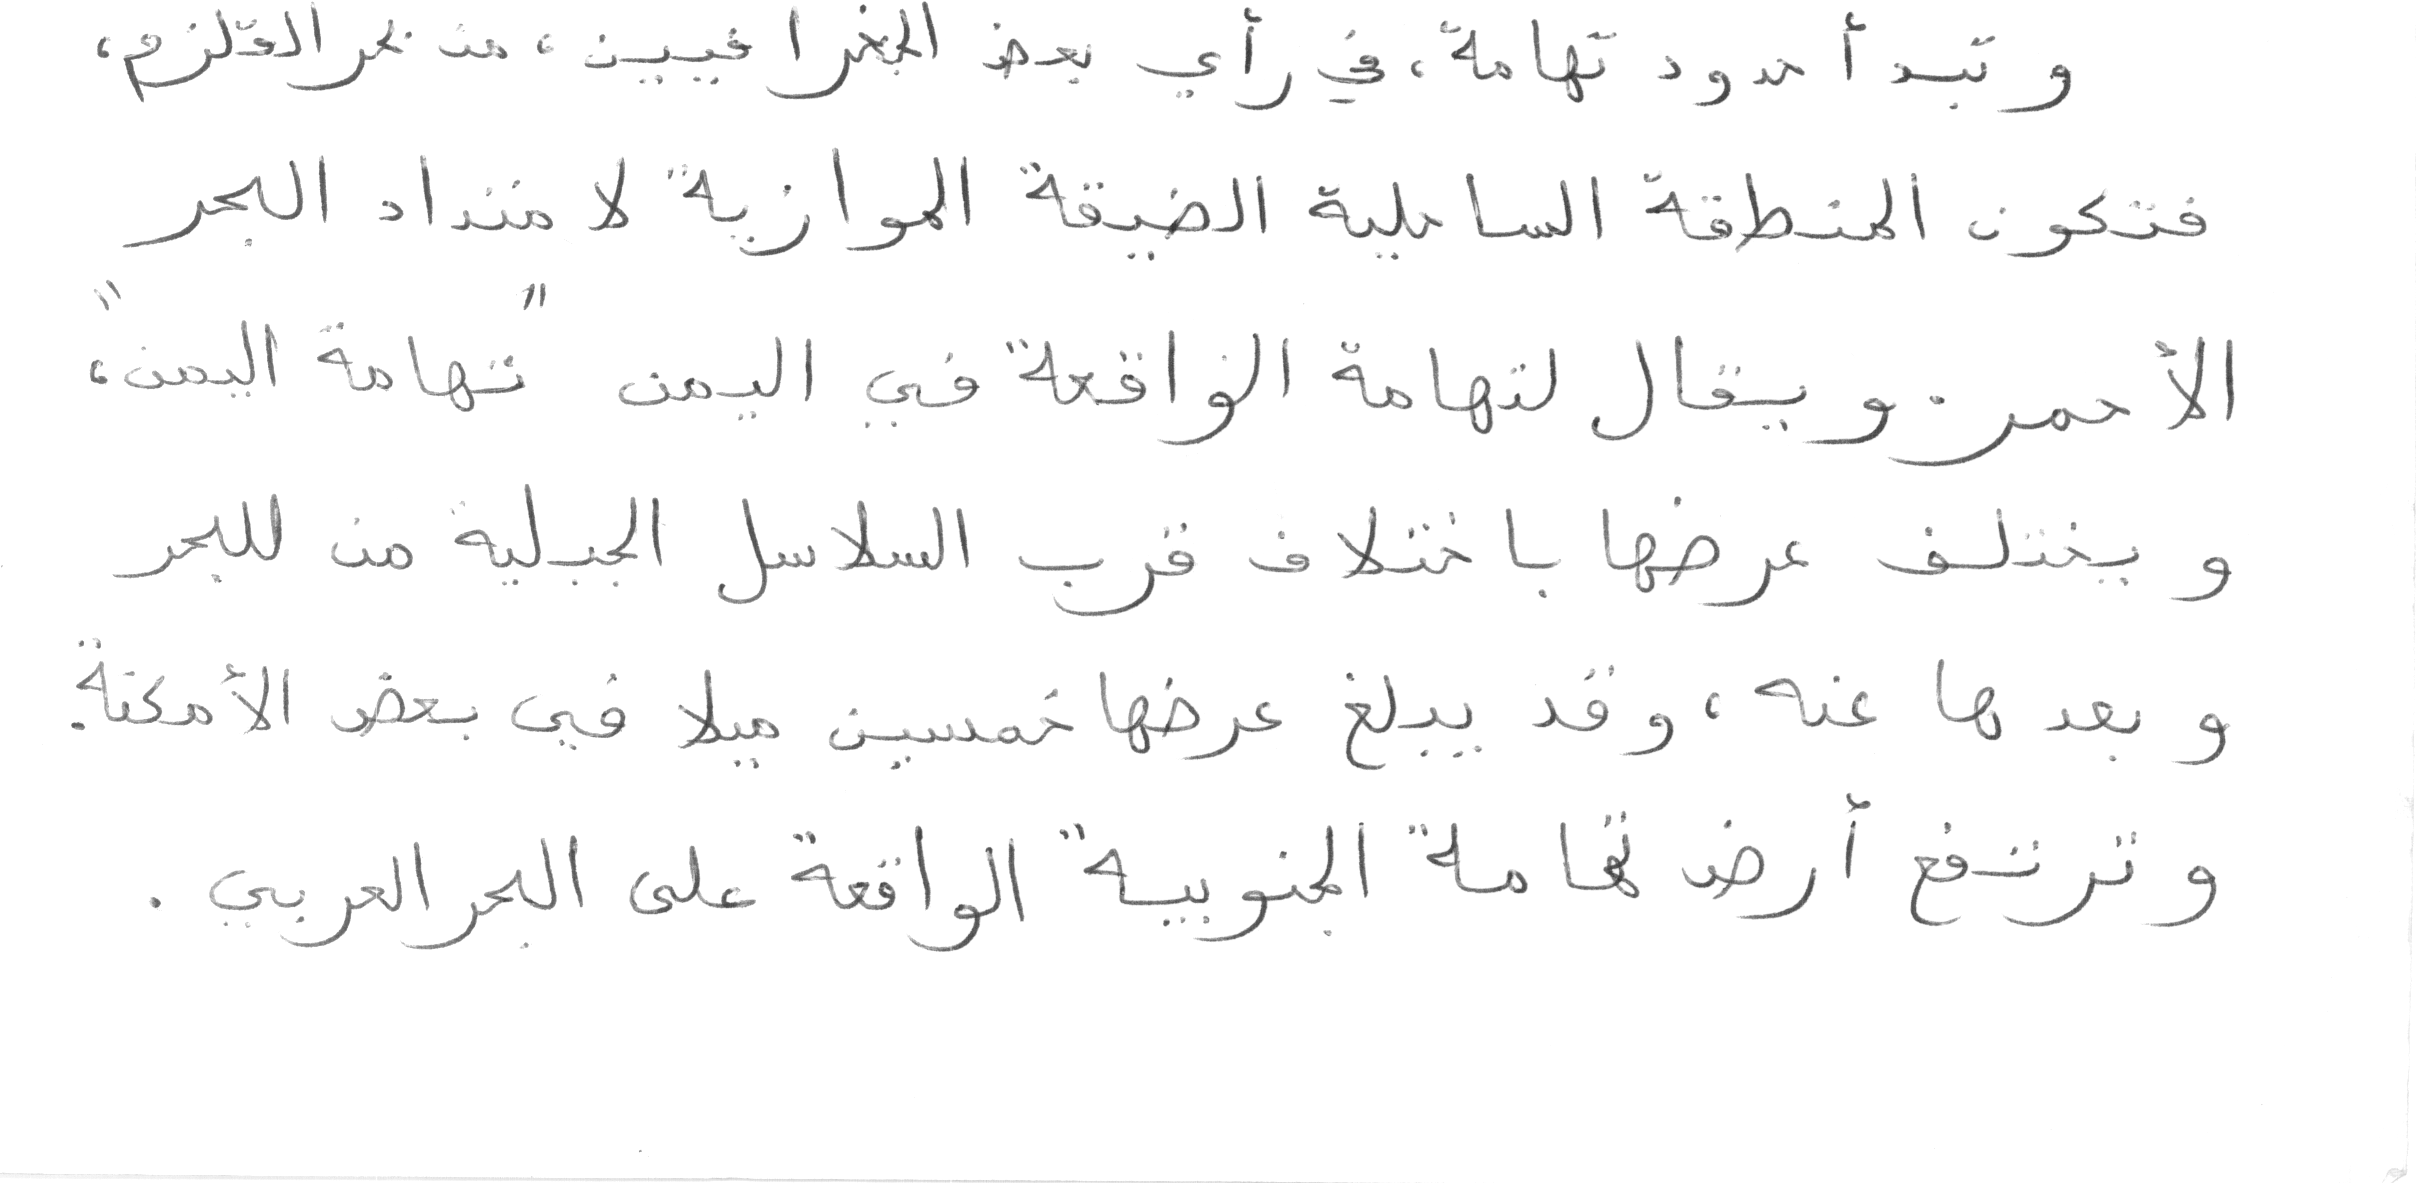 وتبدأ حدود تهامة، في رأي بعض الجغرافيين، من بحر القلزم،
فتكون المنطقة الساحلية الضيقة الموازية لامتداد البحر
الأحمر. ويقال لتهامة الواقعة في اليمن "تهامة اليمن"،
ويختلف عرضها باختلاف قرب السلاسل الجبلية من للبحر
وبعدها عنه، وقد يبلغ عرضها خمسين ميلا في بعض الأمكنة.
وترتفع أرض تهامة الجنوبية الواقعة على البحر العربي.